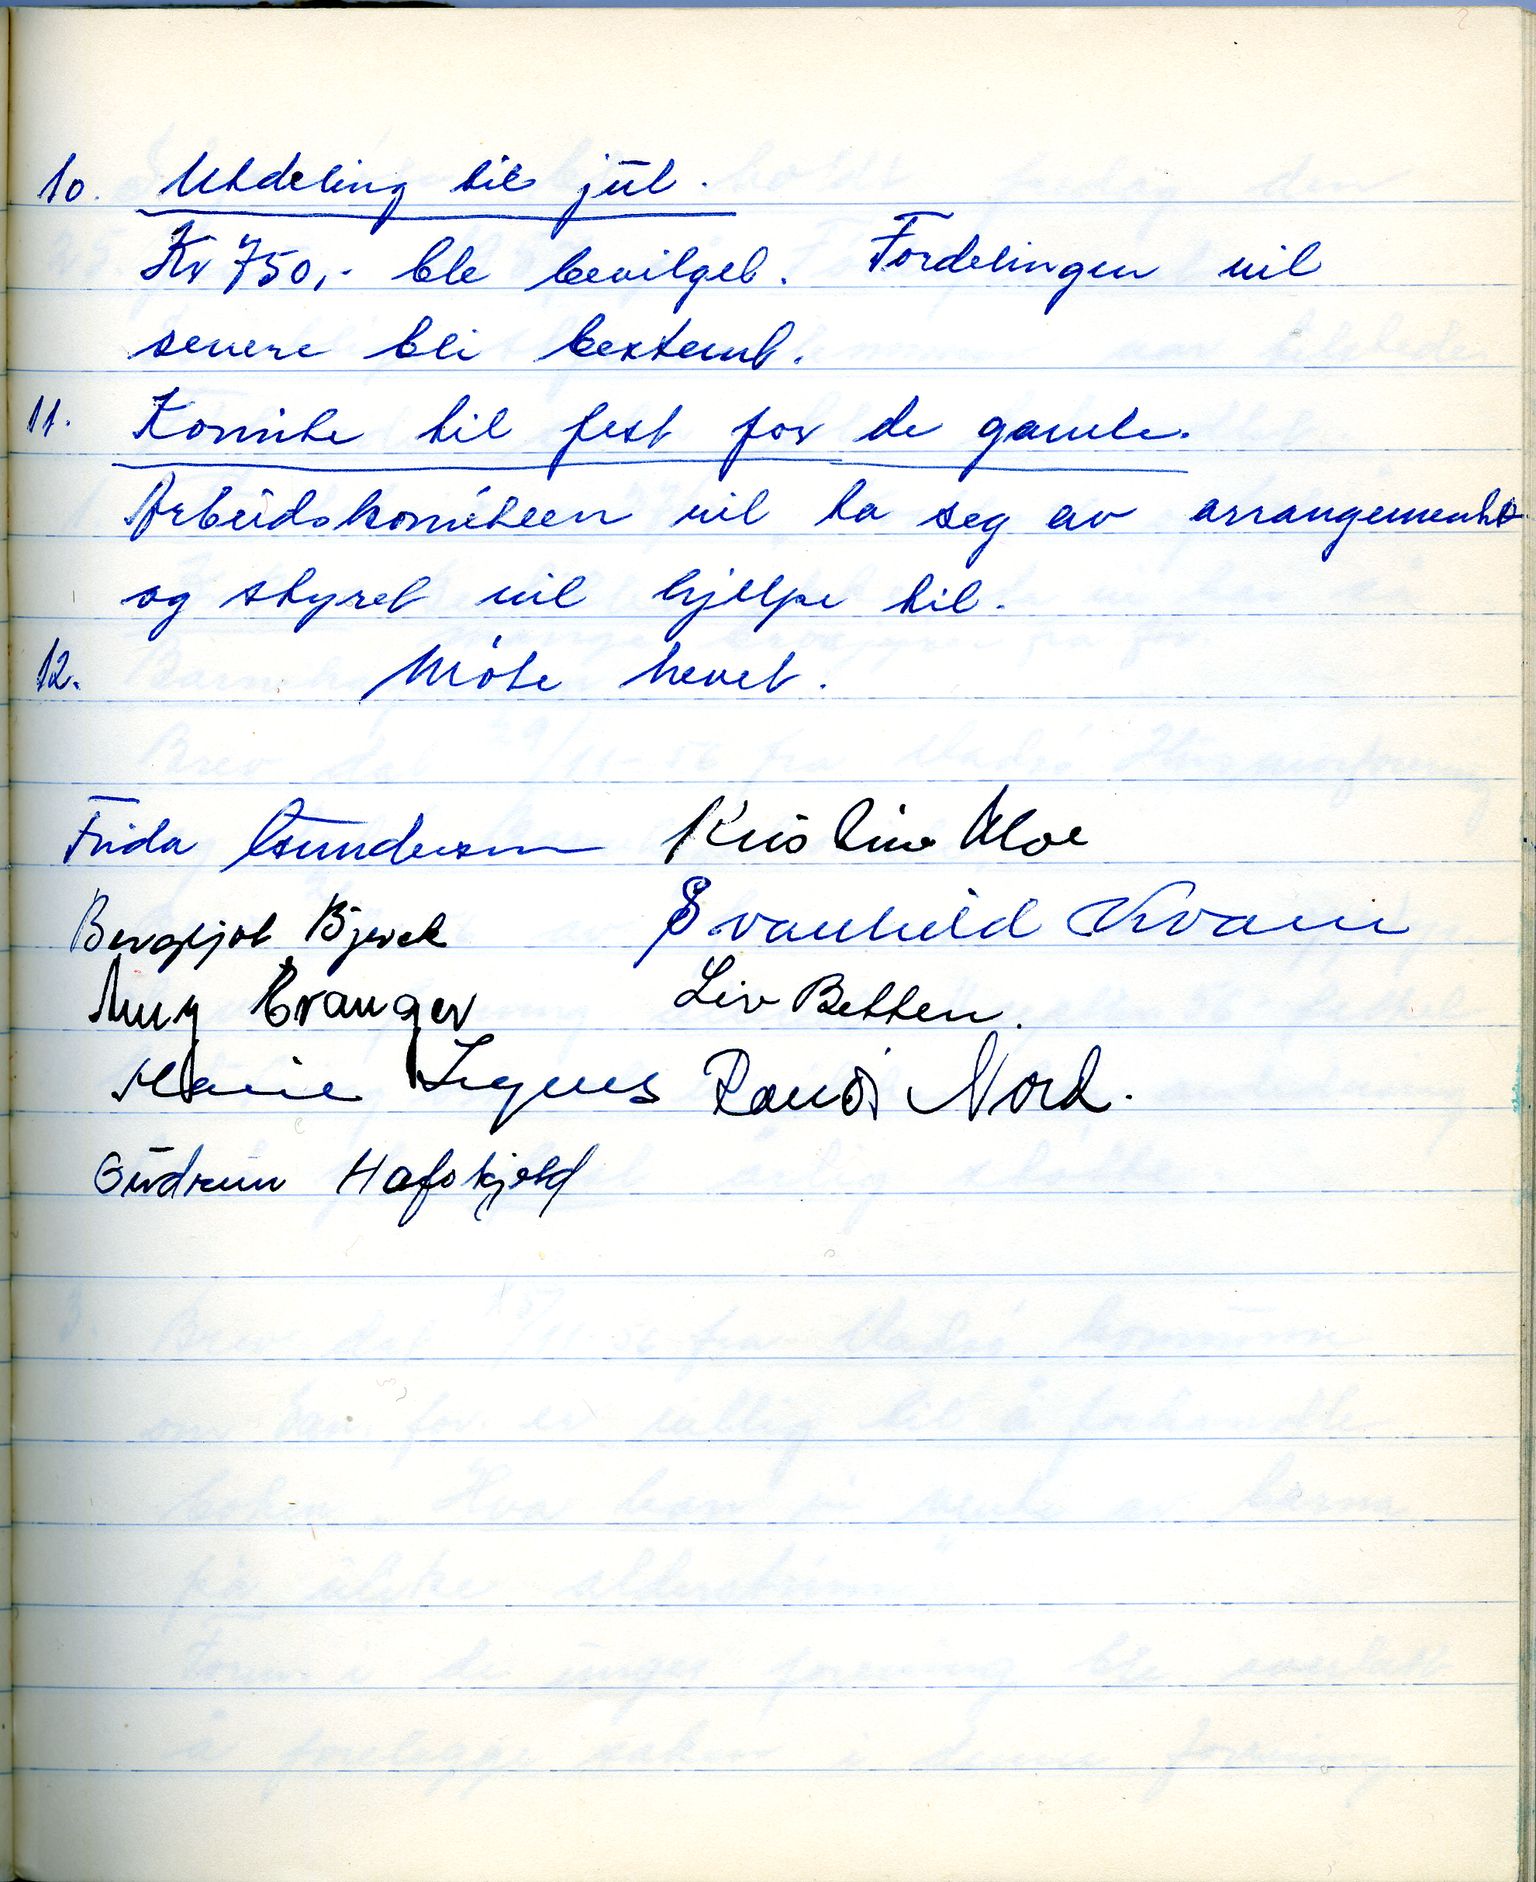 10. Utdeling til jul.
Kr 750,- ble bevilget. Fordelingen vil
senere bli bestemt.
11. Komite til fest for de gamle.
Arbeidskomiteen vil ta seg av arrangementet
og styret vil hjelpe til.
12. Møte hevet.
Frida Gundersen Kristine Moe
Bergljot Bjerck Svanhild Kvam
Amy Cranger Liv Betten.
Marie Randi Nord.
Gudrun Hafskjold